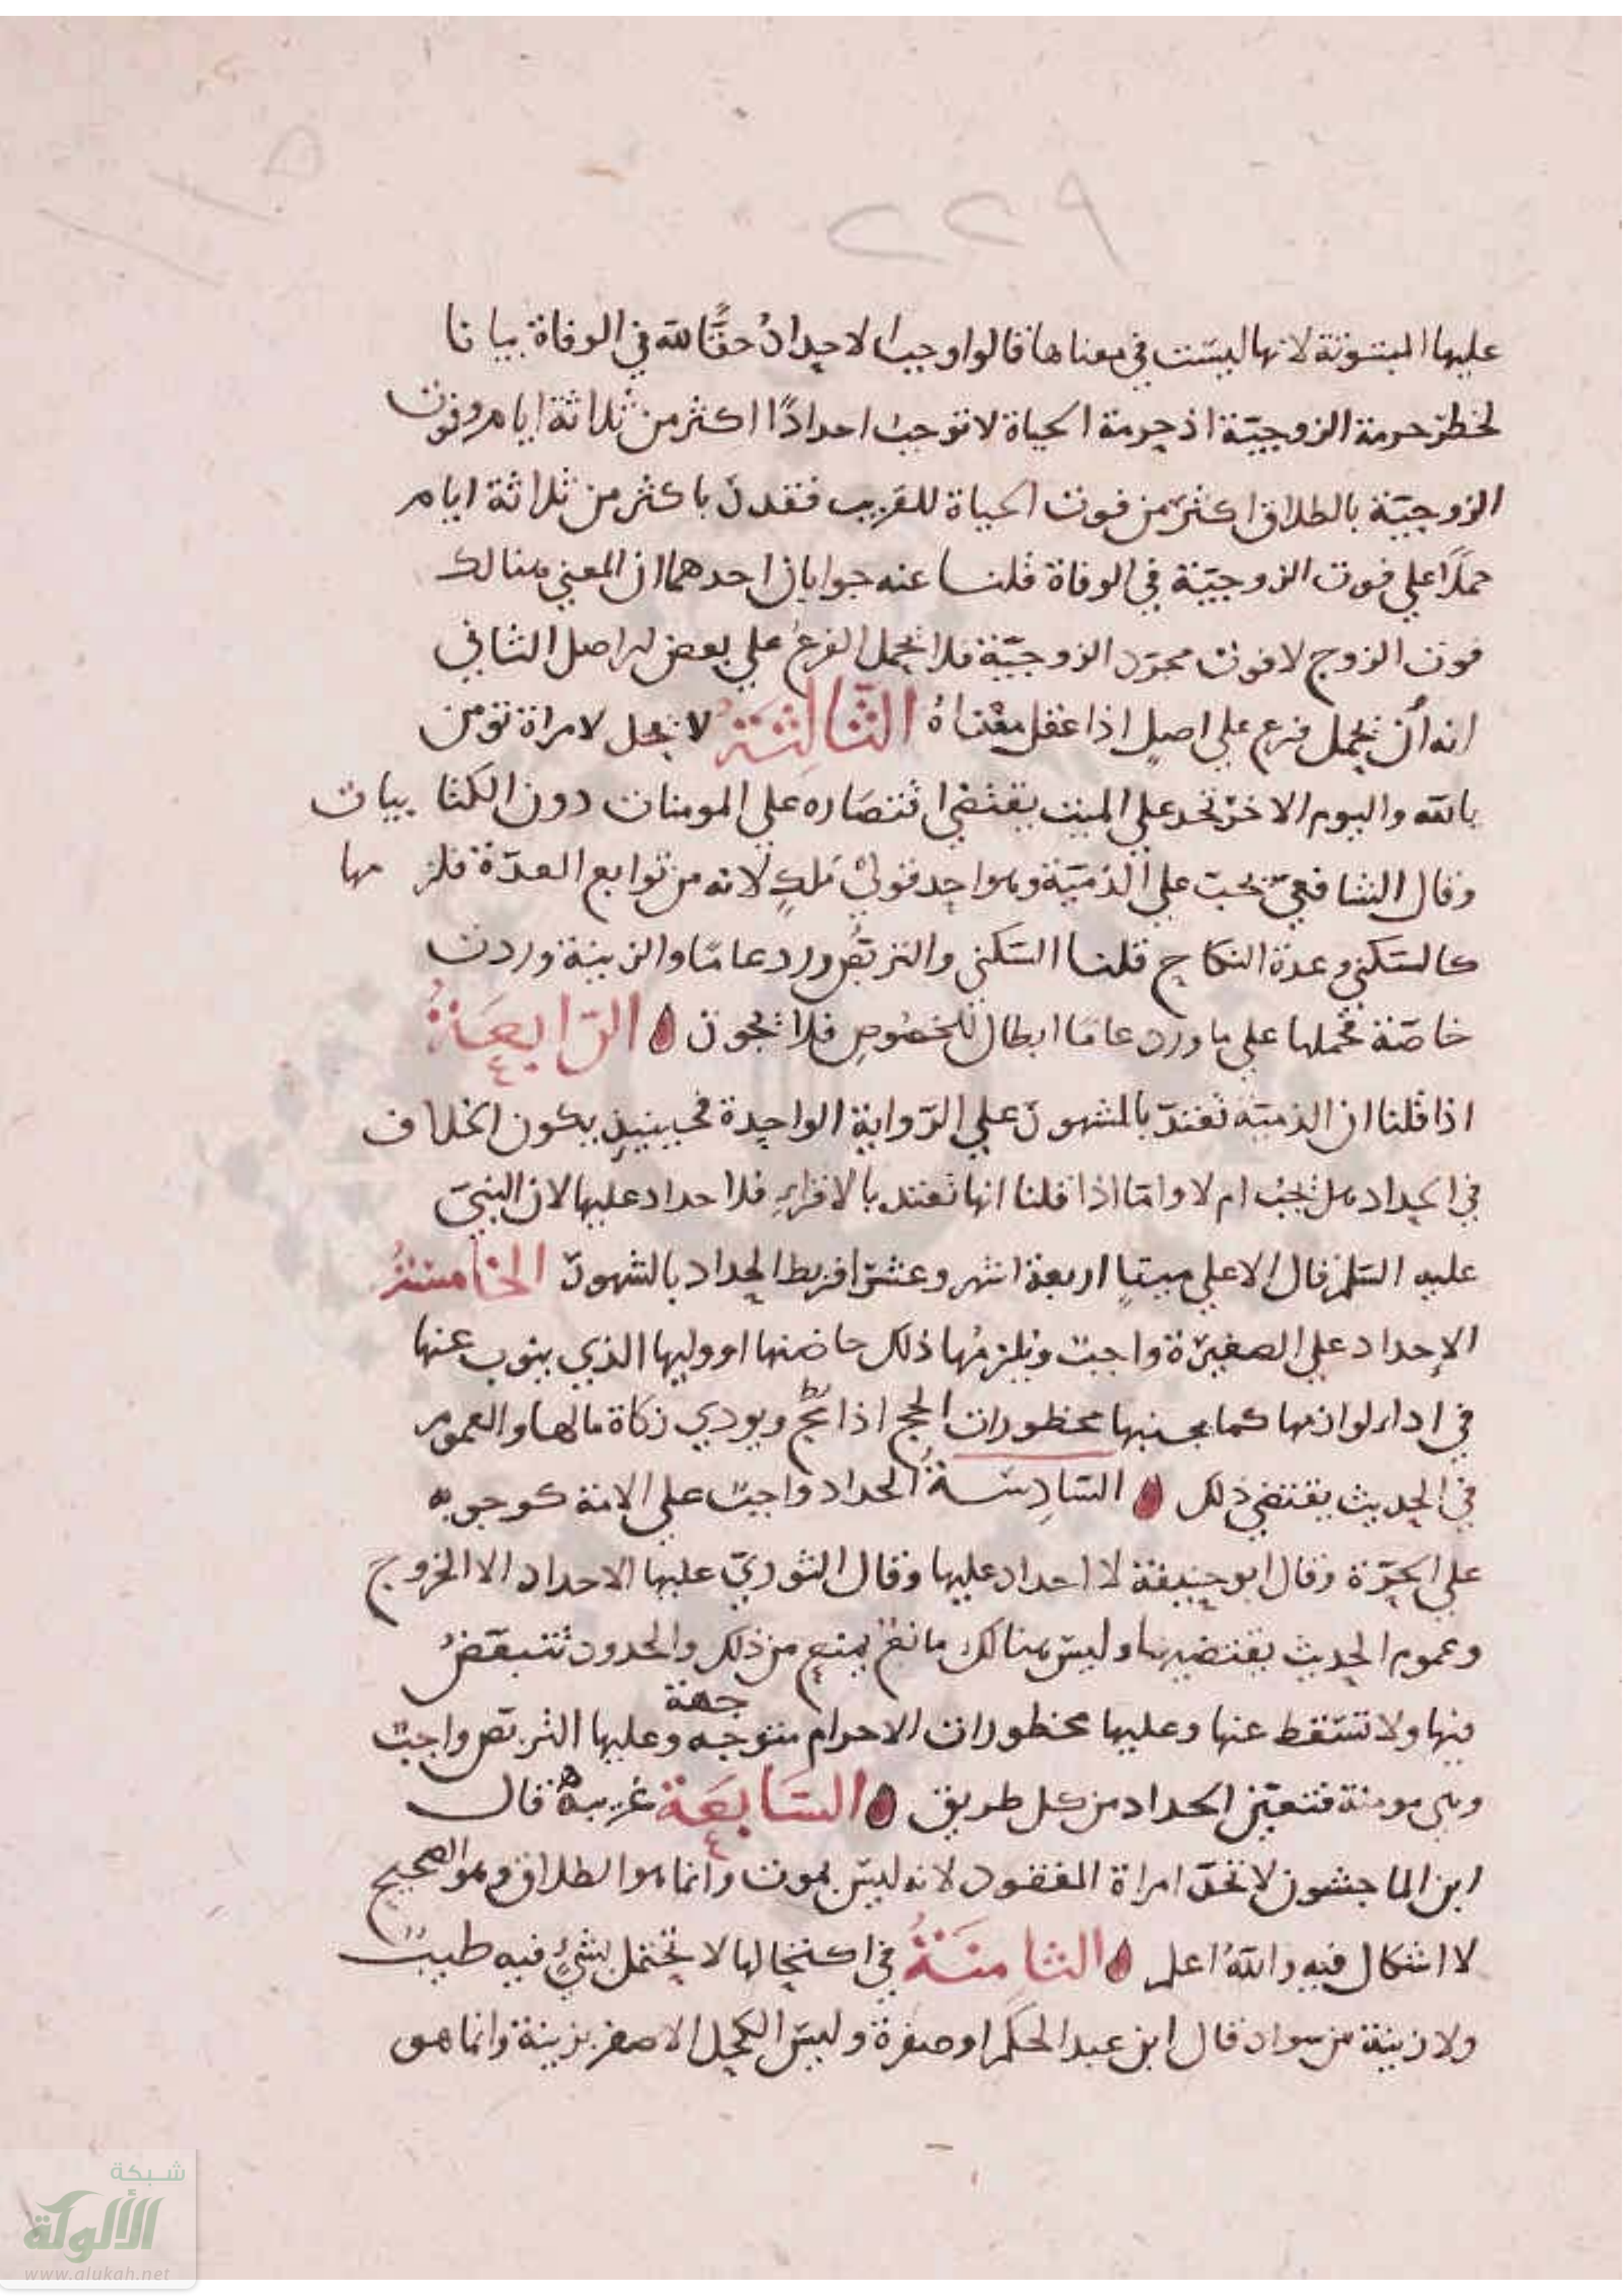 ٢٢٩
عليها المبتوتة لانها ليست في معناها فالوا وجب الاحداد حقًّا لله في الوفاة بيانا
لخطر حرمة الزوجيّة اذ حرمة الحياة لا توجب احدادًا اكثر من ثلاثة ايام وفوت
الزوجيّة بالطلاق اكثر من فوت الحياة للقريب فتقدر باكثر من ثلاثة ايام
حملًا على فوت الزوجيّة في الوفاة قلنا عنه جوابان احدهما ان المعنى هنالك
فوت الزوج لا فوت مجرّد الزوجيّة فلا يحمل الفرع على بعض الاصل الثاني
انه ان يحمل فرع على اصل اذا عقل معناه الثالثة لا يحل لامراة تومن
بالله واليوم الاخر تحد على الميت يقتضي اقتصاره على المومنات دون الكتابيات
وقال الشافعي يجب على الذميّة وهو احد قولي ملك لانه من توابع العدّة فلزمها
كالسكنى وعدة النكاح قلنا السكنى والتربّص ورد عامًا والزينة وردت
خاصّة فحملها على ما ورد عامًا ابطال للخصوص فلا يجوز الرّابعة
اذا قلنا ان الذميّه تعتدّ بالشهور على الرّواية الواحدة فحينيذٍ يكون الخلاف
في الحداد هل يجب ام لا واما اذا قلنا انها تعتد بالاقراءِ فلا حداد عليها لان النبيّ
عليه السلم قال الا على ميتٍ اربعة اشهر وعشرا فربط الحداد بالشهور الخامسة
الإحداد على الصغيرة واجبٌ ويلزمُها ذلك حاضنها او وليها الذي ينوب عنها
في اداء لوازمها كما يجنبها محظورات الحج اذا حج ويودي زكاة مالها والعموم
في الحديث يقتضي ذلك السّادِسَة الحداد واجبٌ على الامة كوجوبه
على الحرّة وقال ابو حنيفة لا احداد عليها وقال الثوريّ عليها الاحداد الا الخروج
وعموم الحديث يقتضيها وليس هنالك مانع يمنع من ذلك والحدود تتبعّضُ
فيها ولا تسقط عنها وعليها محظورات الاحرام متوجهة وعليها التربّص واجبٌ
وهي مومنة فتعيّن الحداد من كل طريق السّابعة غريبة قال
ابن الماجشون لا تحدّ امراة المفقود لانه ليس بموت وانما هو الطلاق وهو الصحيح
لا اشكال فيه والله اعلم الثامنة في اكتحالها لا تكتحل بشيءٍ فيه طيبٌ
ولا زينة من سواد قال ابن عبد الحكم او صفرة وليس الكحل الاصفر بزينة وانما هو
شبكة
الألوكة
www.alukah.net